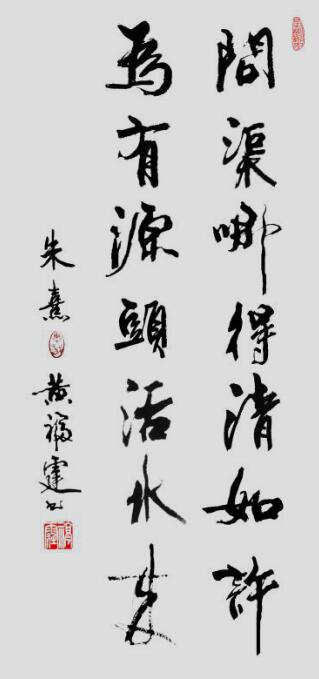 問渠哪得清如許
為有源頭活水來
朱熹 黄福霆书